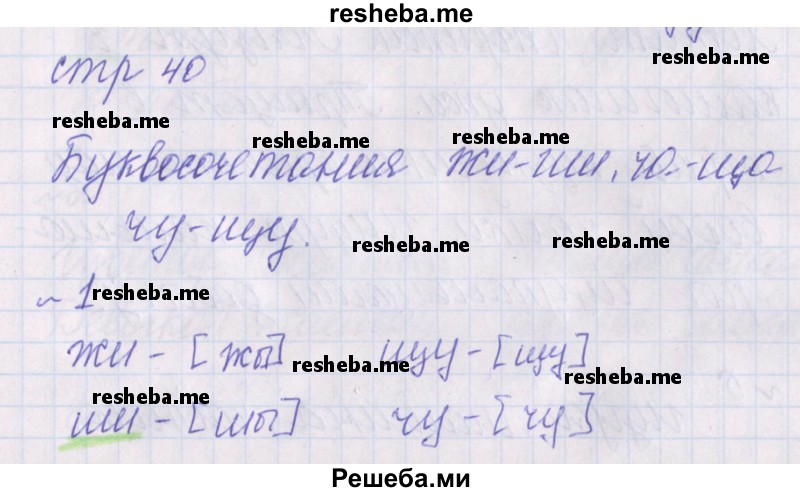 resheba.me
resheba.me
стр 40
resheba.me resheba.me resheba.me
Буквосочетания жи-ши, ча-ща
чу-щу.
resheba.me resheba.me
~ 1 resheba.me
жи - [жы] щу - [щу]
resheba.me resheba.me
resheba.me
ши - [шы] чу - [чу]
Решеба.ми